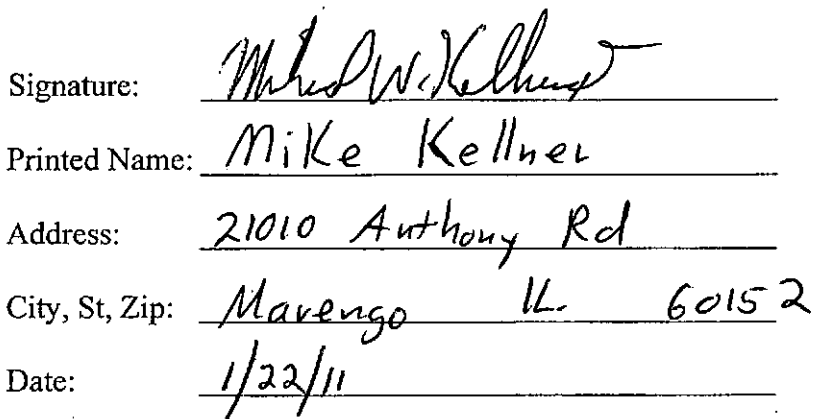 Signature: Michael W. Kellner
Printed Name: Mike Kellner
Address: 21010 Anthony Rd
City, St, Zip: Marengo IL. 60152
Date: 1/22/11